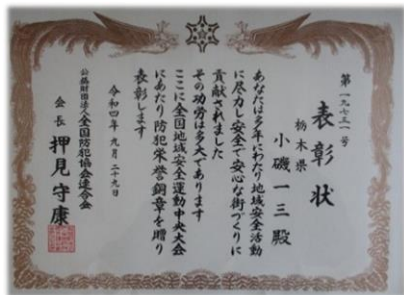 第一九七三一号
表彰状
栃木県
小磯一三殿
あなたは多年にわたり地域安全活動
に尽力し安全で安心な街づくりに
貢献されました
その功労は多大であります
ここに全国地域安全運動中央大会
にあたり防犯栄誉銅章を贈り
表彰します
令和四年九月二十九日
公益財団法人全国防犯協会連合会
会長 押見守康